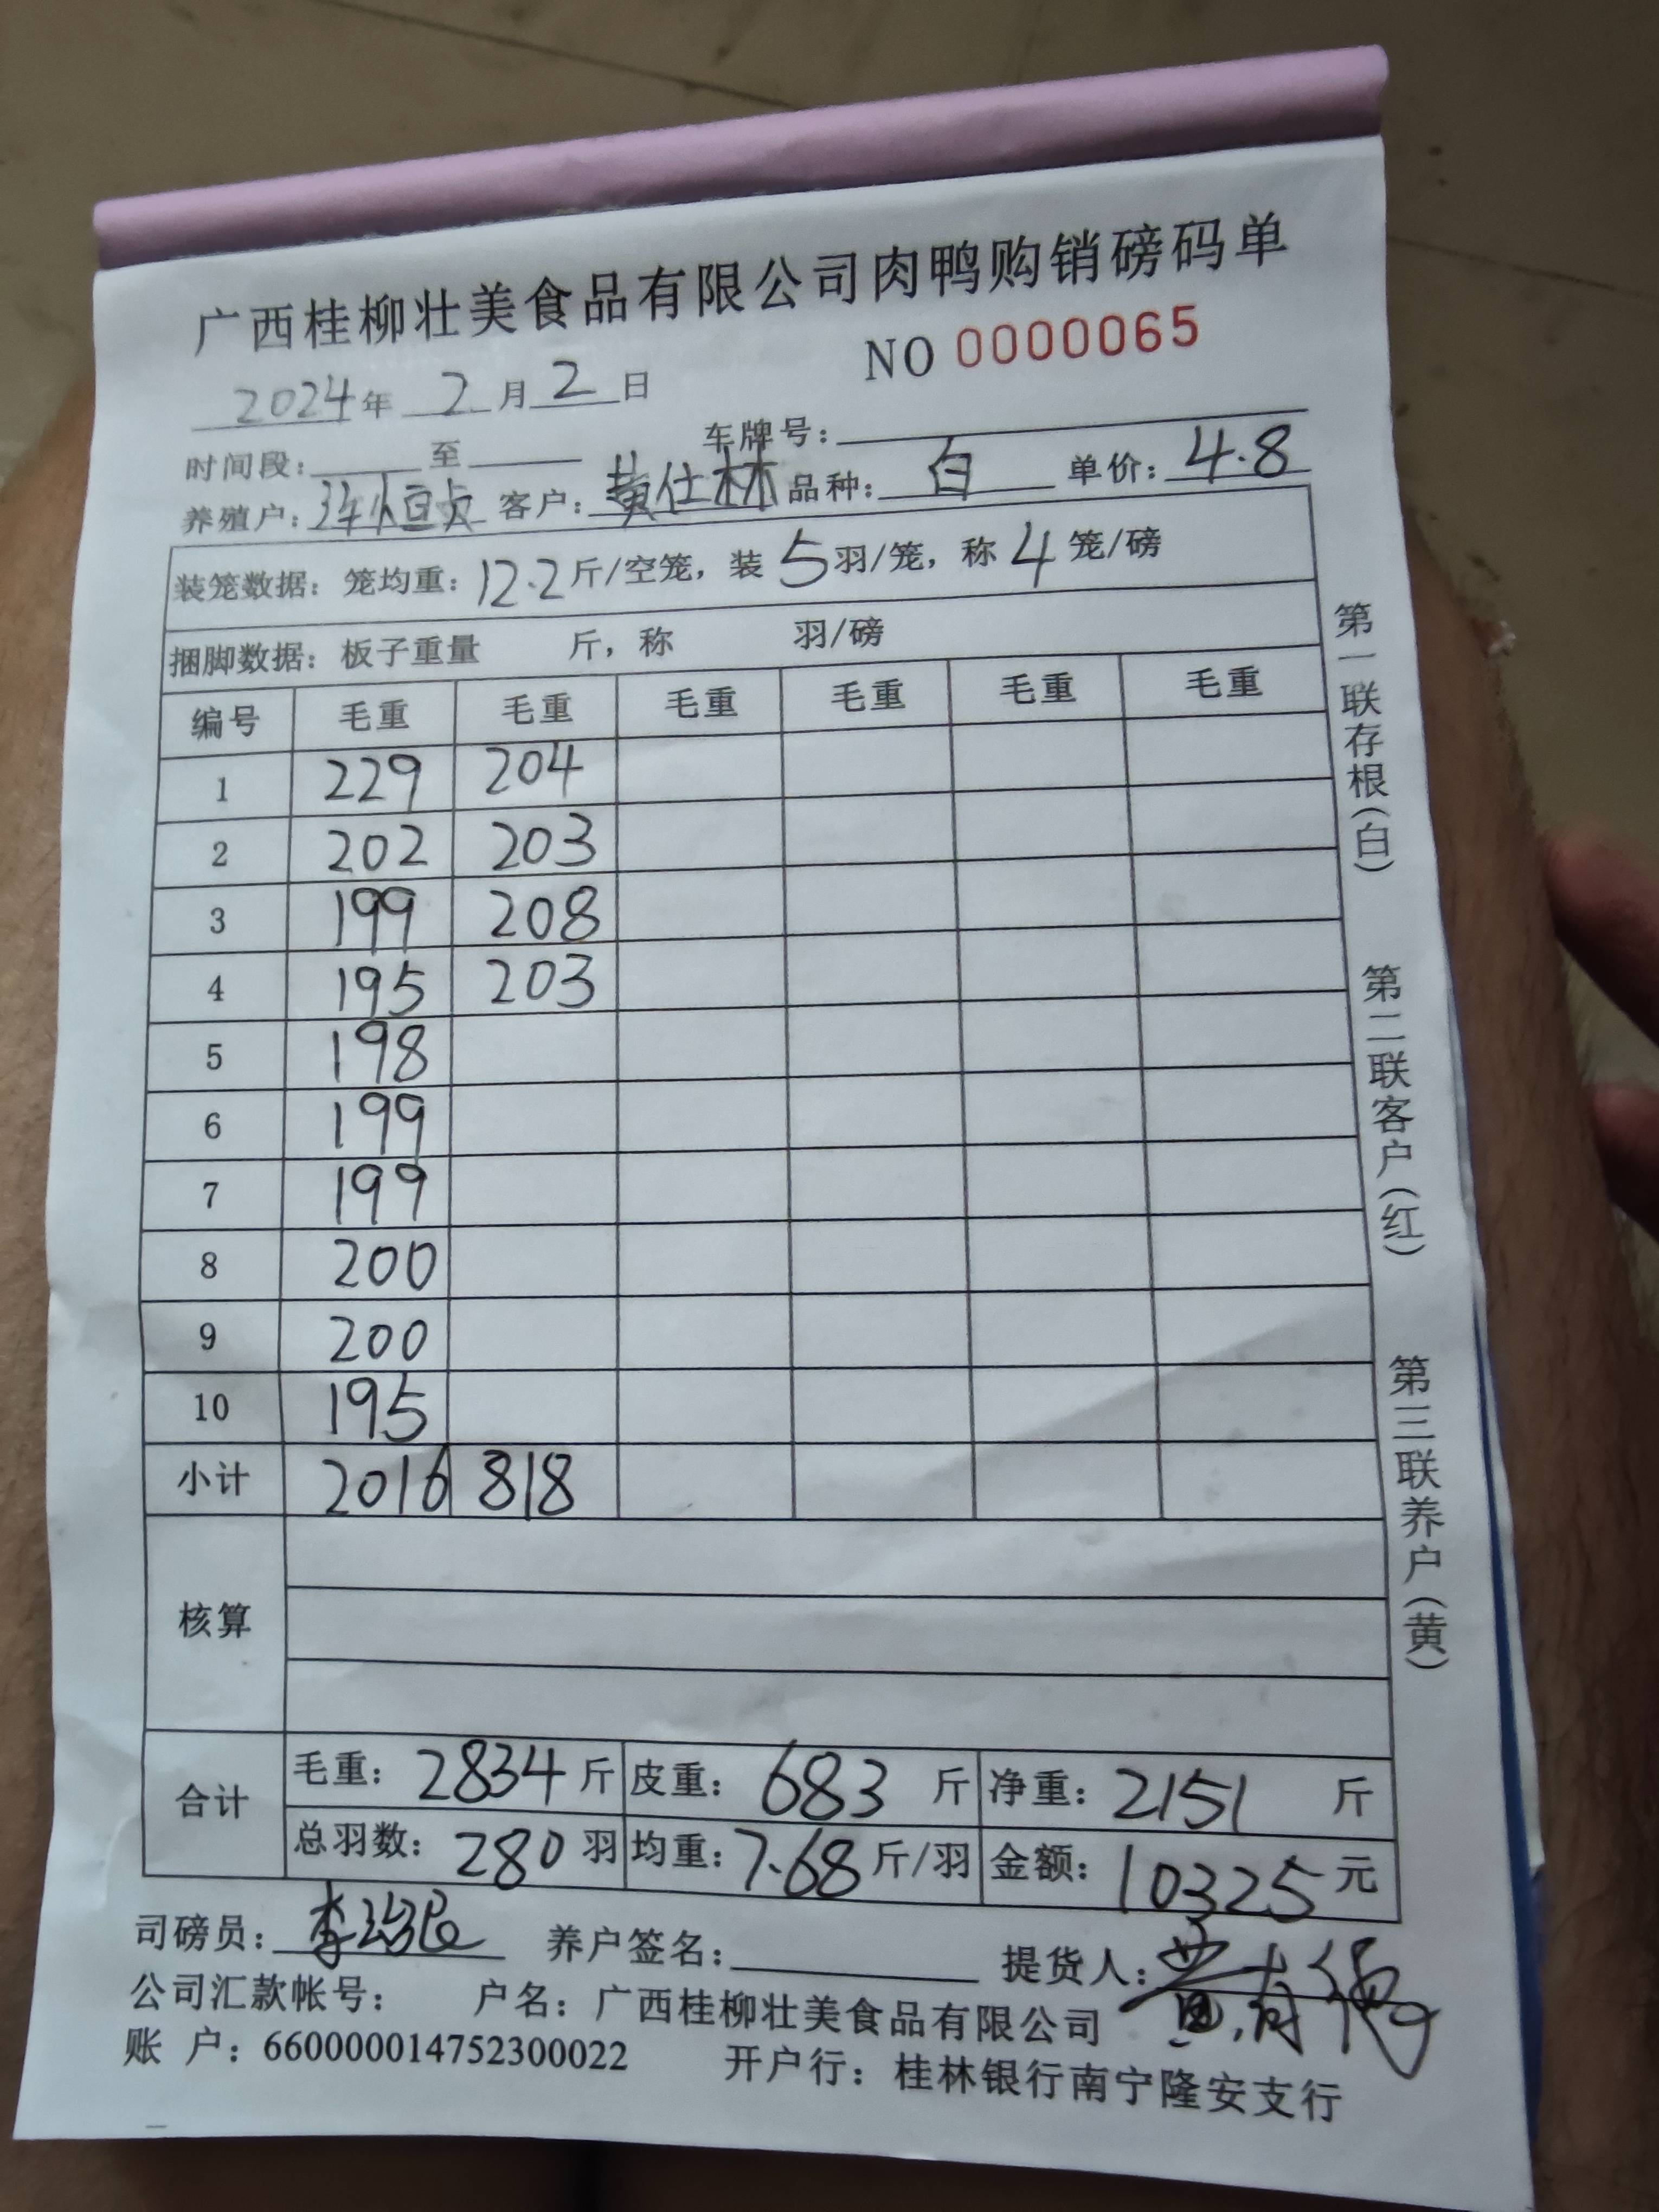 广西桂柳壮美食品有限公司肉鸭购销磅码单
NO 0000065
2024年 2月 2日
时间段： 至 车牌号：
养殖户： 客户：黄仕林 品种：白 单价：4.8
装笼数据：笼均重：12.2斤/空笼，装 5 羽/笼，称 4 笼/磅
捆脚数据：板子重量 斤，称 羽/磅
编号 毛重 毛重 毛重 毛重 毛重 毛重
1 229 204
2 202 203
3 199 208
4 195 203
5 198
6 199
7 199
8 200
9 200
10 195
小计 2016 818
核算
合计 毛重：2834斤 皮重：683斤 净重：2151斤
总羽数：280羽 均重：7.68斤/羽 金额：10325元
司磅员： 养户签名： 提货人：
公司汇款帐号： 户名：广西桂柳壮美食品有限公司
账 户：660000014752300022 开户行：桂林银行南宁隆安支行
第一联存根（白）
第二联客户（红）
第三联养户（黄）